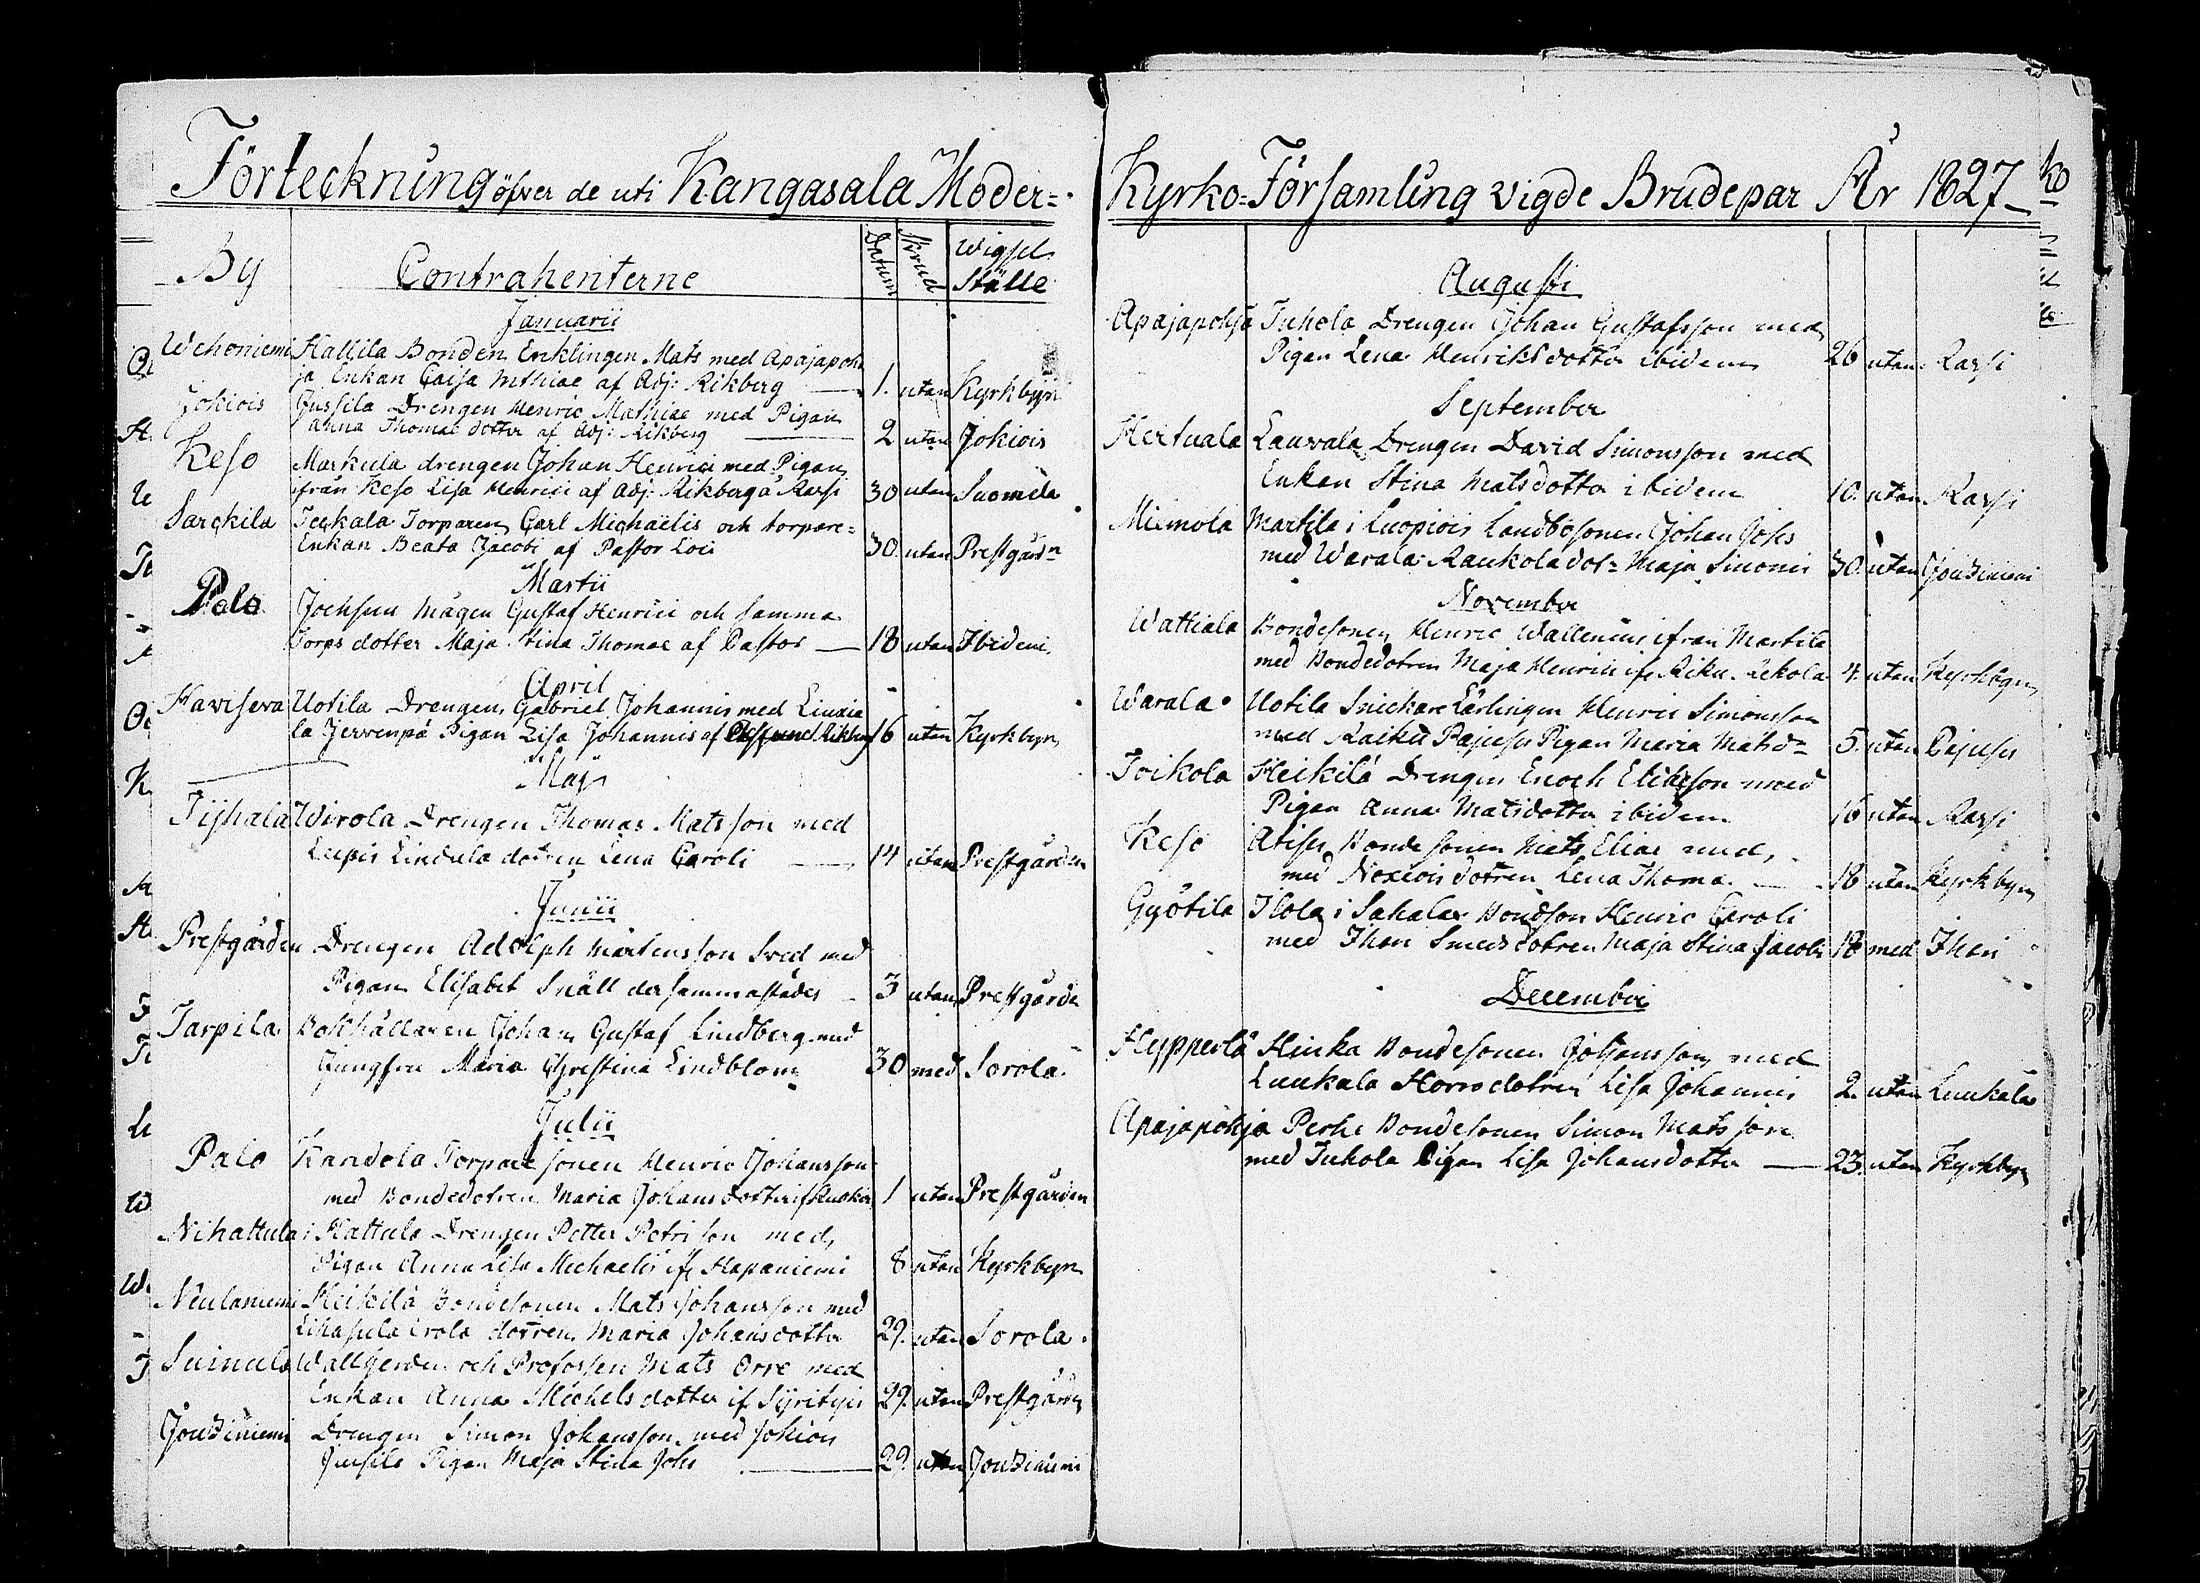 Förteckning öfver de uti Kangasala Moder=
By Contrahenterne Datum Skrud Wigsel Ställe
Januarii
Wehoniemi Kallila Bonden Enklingen Mats med Apajapoh
ja Enkan Caisa Mthiae af Adj: Rikberg 1. utan Kyrkbyn
Jokiois Jussila Drengen Henric Mathiae med Pigan
Anna Thomae dotter af Adj: Rikberg 2 utan Jokiois
Keso Markula drengen Johan Henrici med Pigan
ifrån Keso Lisa Henrici af Adj: Rikberg å Rarsi 30 utan Suomela
Sarckila Teckala Torparen Carl Michaëlis och torpare=
Enkan Beata Jacobi af Pastor Loci 30. utan Prestgård=n
Martii
Palo Jochsuu Mågen Gustaf Henrici och samma
Torps dotter Maja Stina Thomae af Pastor 18 utan Ibidem
April
Havisera Uotila Drengen Gabriel Johannis med Liuxia
la Jervenpä Pigan Lisa Johannis af 16 utan Kyrkbyn
Maji
Tijhala Wirola Drengen Thomas Matsson med
Lepis Lindula dotren Lena Caroli 14 utan Prestgården
Junii
Prestgården Drengen Adolph Mårtensson Sved med
Pigan Elisabet Snäll der sammastädes 3 utan Prestgårde
Tarpila Bokhållaren Johan Gustaf Lindberg med
Jungfru Maria Christina Lindblom 30 med Sorola
Julii
Palo Kandola Torpare sonen Henric Johansson
med Bondedotren Maria Johans dotter if 1 utan Prestgården
Nihattula Hattula Drengen Petter Petri son med
Pigan Anna Lisa Michaelis if Hapaniemi 8 utan Kyrkbyn
Neulaniemi Heikilä Bondesonen Mats Johansson med
Lihasula Erola dotren Maria Johansdotter 29. utan Sorola.
Suinula Wallgerden och Profossen Mats Orre med
Enkan Anna Michels dotter if Syritys 29. utan Prestgårn
Jouziniemi Drengen Simon Johansson med Jokiois
Jussila Pigan Maja Stina Johs 29. utan Jouziniemi
Kyrko=Församling vigde Brudepar År 1827_
Augusti
Apajapohja Juhola Drengen Johan Gustafsson med
Pigan Lena Henriksdotter ibidem 26 utan Rarsi
September
Hertuala Lauvala Drengen David Simonsson med
Enkan Stina Matsdotter ibidem 10. utan Rarsi
Miemola Martila i Luopiois Landbosonen Johan Johs
med Warala Raukola dot= Maja Simonis 30. utan Jouziniemi
November
Wattiala Bondesonen Henric Wallenius ifrån Martila
med Bondedotren Maja Henrici if Riku Uekola 4. utan Kyrkbyn
Warala Uotila Snickare Lärlingen Henric Simonsson
med Raiku Pajuses Pigan Maria Matsd= 5. utan Pajuses
Toikola Heikilä Drengen Enoch Eliaeson med
Pigan Anna Matsdotter ibidem 16 utan Rarsi
Keso Atiser Bonde sonen Mats Eliae med
med Noxiois dotren Lena Thoma 18 utan Kyrkbyn
Gyötila Ilola i Sahalax Bondson Henric Caroli
med Ihan Smeds dotren Maja Stina Jacobi 18 med Ihari
December
Hypperlä Hinka Bondesonen Johansson med
Luukala Horro dotren Lisa Johannis 2. utan Luukala
Apajapohja Perhe Bondesonen Simon Matsson
med Juhola Pigan Lisa Johansdotter 23. utan Kyrkbyn